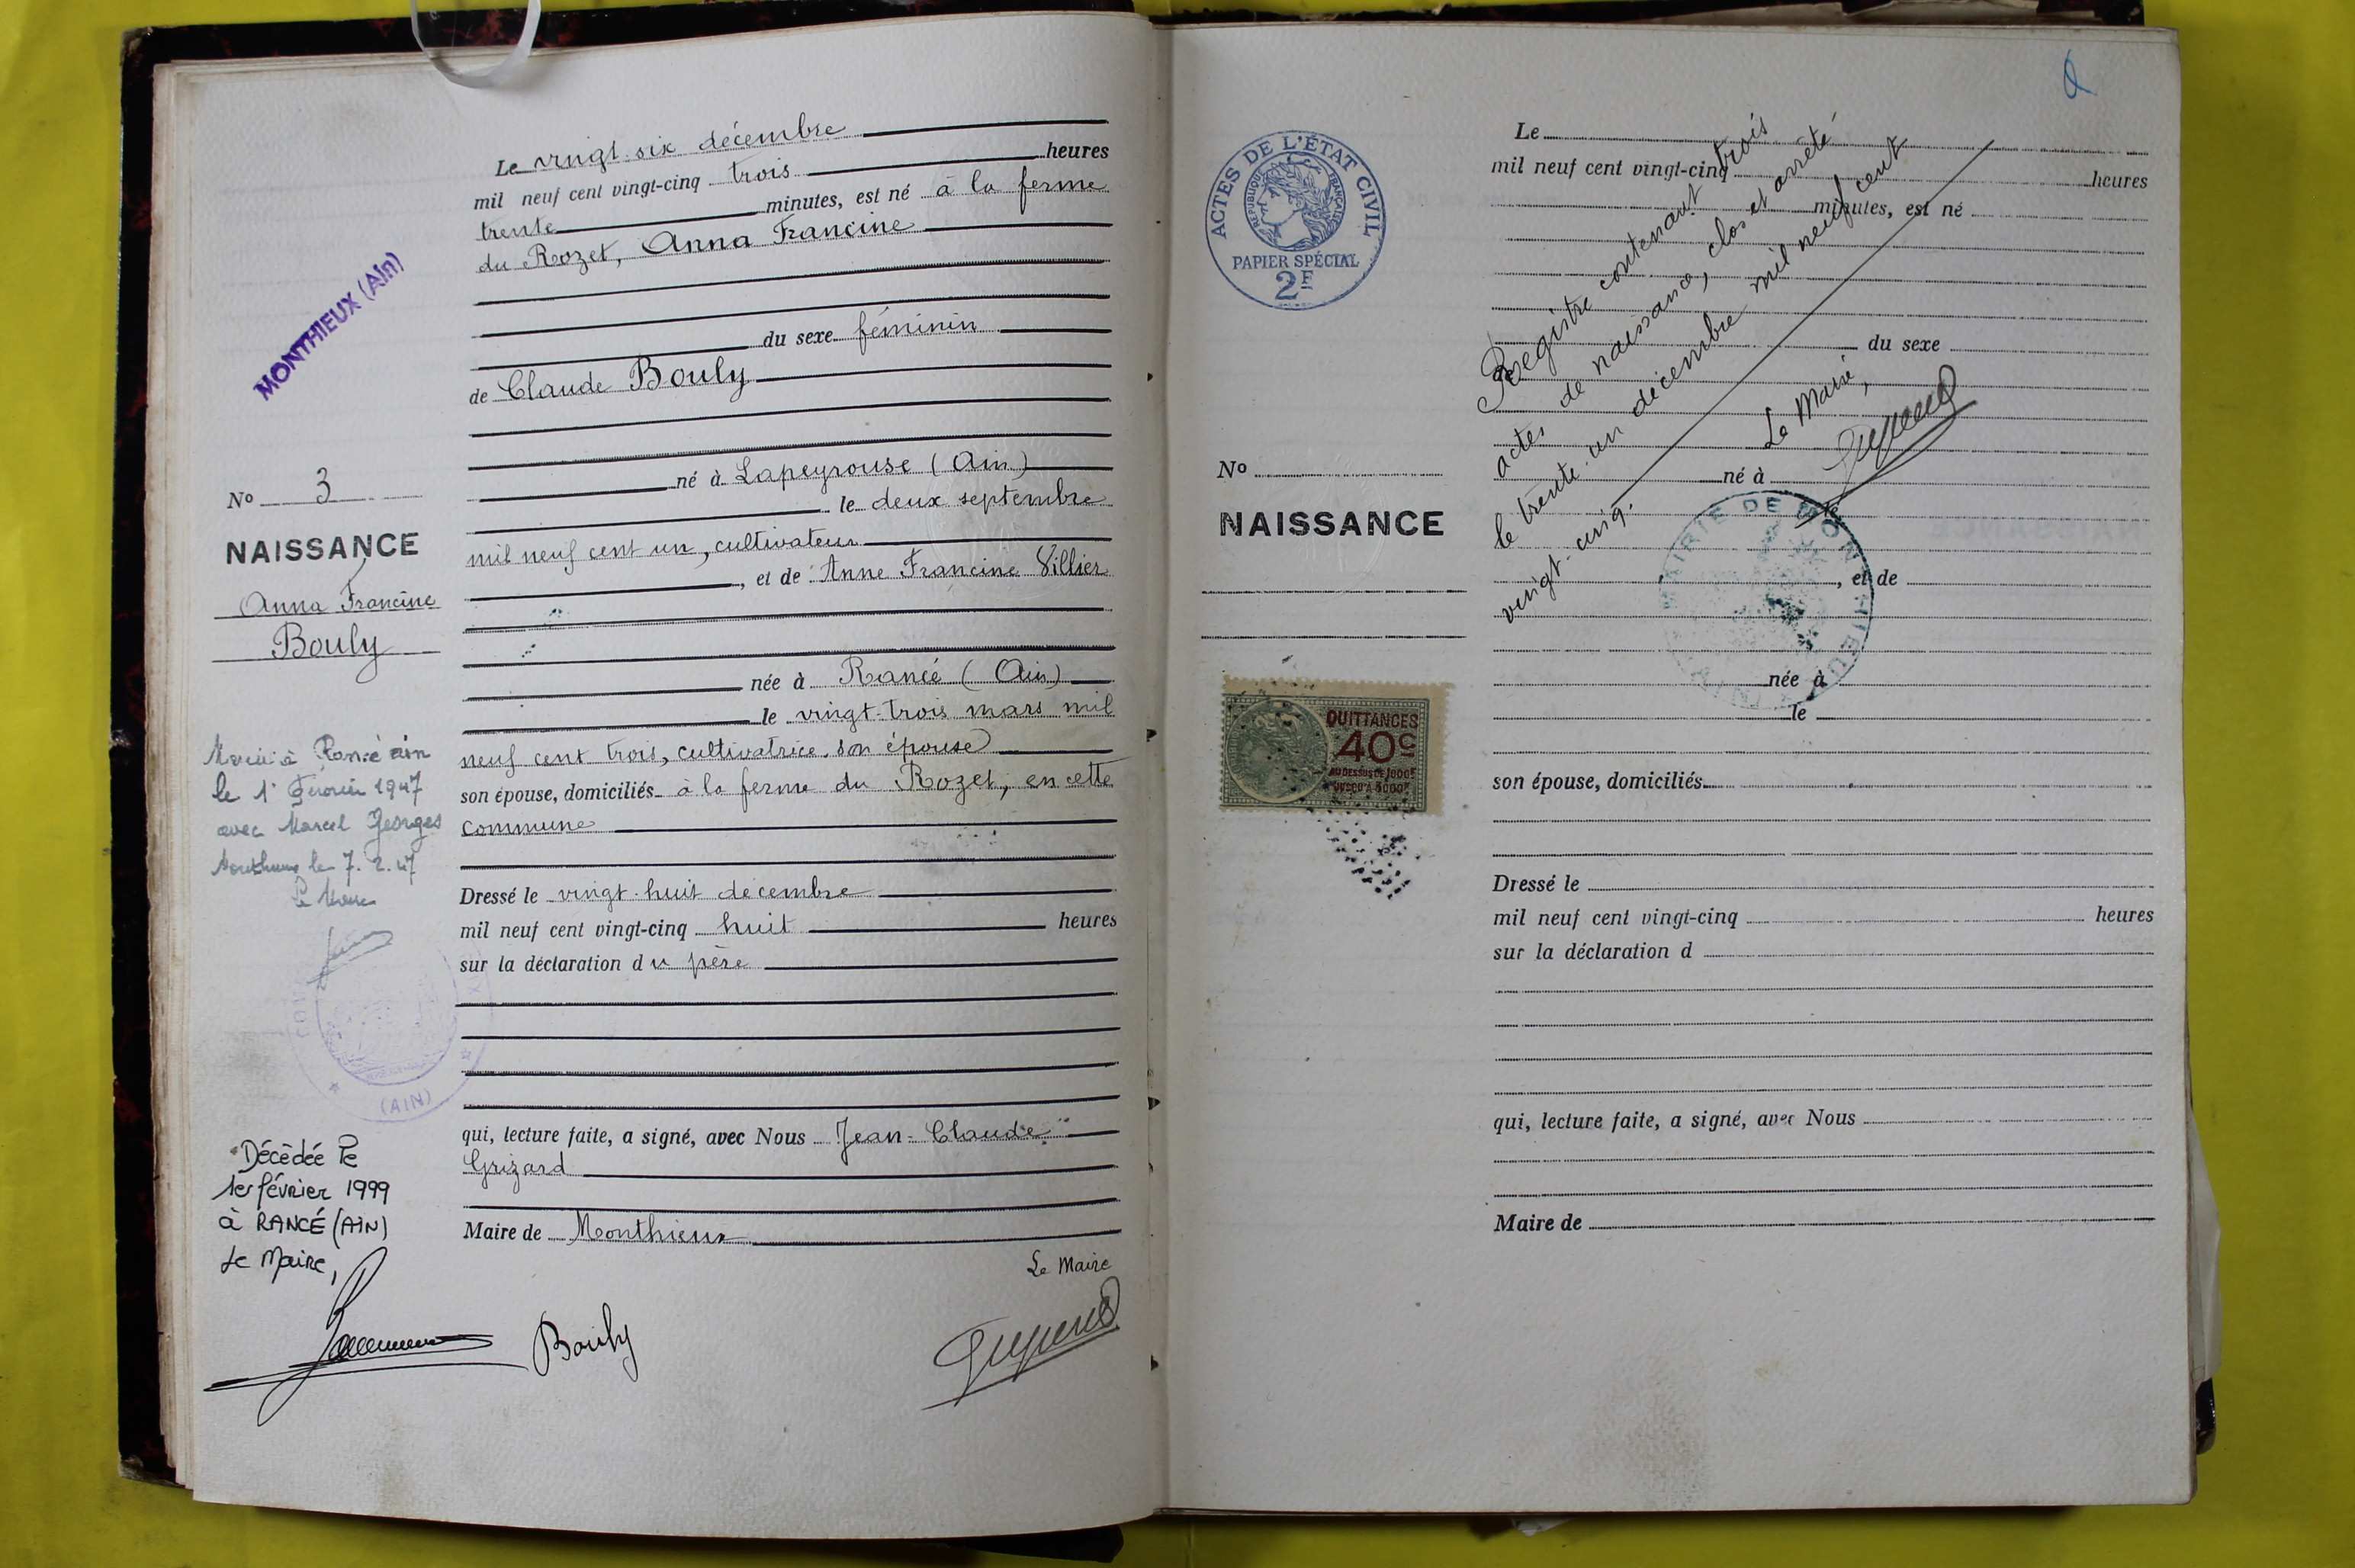 MONTHIEUX (Ain)
No 3
NAISSANCE
Anna Francine
Bouly
à Rancé ain
le 1er Février 1947
avec Marcel Georges
le 7. 2. 47
Le Maire
(AIN)
Décédée le
1er février 1999
à RANCÉ (AiN)
Le Maire,
Le vingt-six décembre
mil neuf cent vingt-cinq trois heures
trente minutes, est né à la ferme
du Rozet, Anna Francine
du sexe féminin
de Claude Bouly
né à Lapeyrouse (Ain)
le deux septembre
mil neuf cent un, cultivateur
, et de Anne Francine Villier
née à Rancé (Ain)
le vingt-trois mars mil
neuf cent trois, cultivatrice, son épouse
son épouse, domiciliés à la ferme du Rozet, en cette
commune
Dressé le vingt-huit décembre
mil neuf cent vingt-cinq huit heures
sur la déclaration du père
qui, lecture faite, a signé, avec Nous Jean-Claude
Grizard
Maire de Monthieux
Le Maire
Bouly
ACTES DE L'ÉTAT CIVIL
RÉPUBLIQUE FRANÇAISE
PAPIER SPÉCIAL
2F
No
NAISSANCE
QUITTANCES
40c
AU DESSUS DE 1000F
JUSQU'A 3000F
Le
mil neuf cent vingt-cinq heures
minutes, est né
du sexe
de
né à
le
, et de
née à
le
son épouse, domiciliés
Dressé le
mil neuf cent vingt-cinq heures
sur la déclaration d
qui, lecture faite, a signé, avec Nous
Maire de
Registre contenant trois
actes de naissance, clos et arrêté
le trente-un décembre mil neuf cent
vingt-cinq.
Le Maire,
MAIRIE DE MONTHIEUX